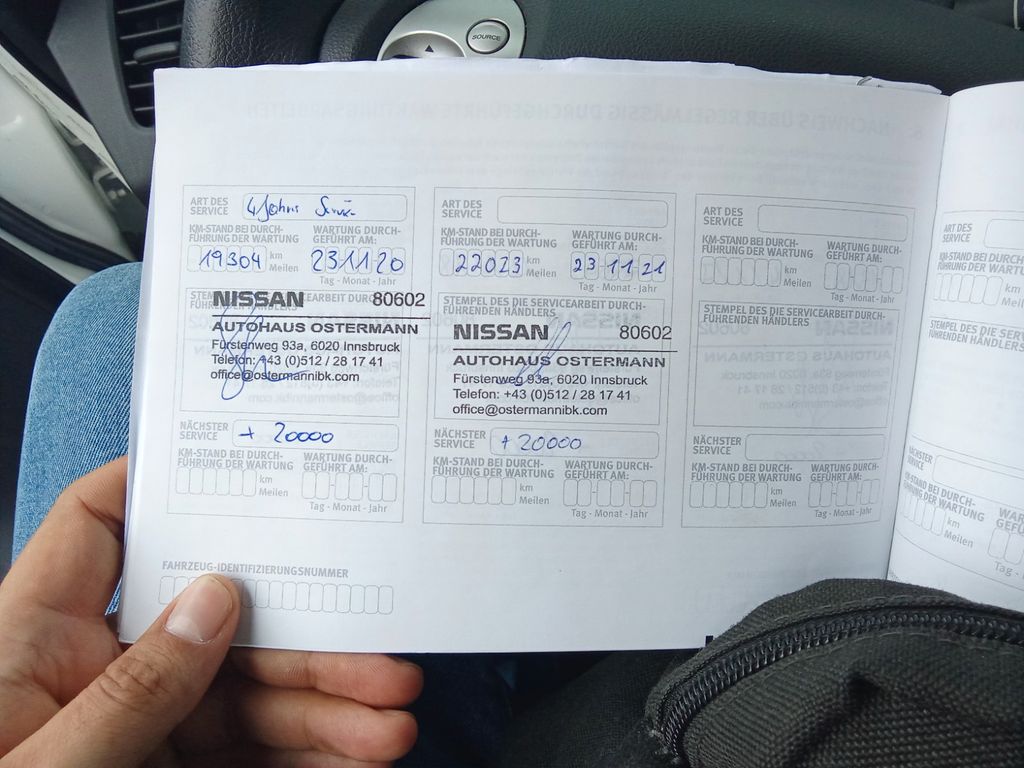 SOURCE
ART DES
SERVICE
4 Jahres Service
KM-STAND BEI DURCH-
FÜHRUNG DER WARTUNG
WARTUNG DURCH-
GEFÜHRT AM:
19304 km
Meilen
23 11 20
Tag - Monat - Jahr
NISSAN 80602
AUTOHAUS OSTERMANN
Fürstenweg 93a, 6020 Innsbruck
Telefon: +43 (0)512 / 28 17 41
office@ostermannibk.com
NÄCHSTER
SERVICE
+ 20000
KM-STAND BEI DURCH-
FÜHRUNG DER WARTUNG
WARTUNG DURCH-
GEFÜHRT AM:
km
Meilen
Tag - Monat - Jahr
ART DES
SERVICE
KM-STAND BEI DURCH-
FÜHRUNG DER WARTUNG
WARTUNG DURCH-
GEFÜHRT AM:
22023 km
Meilen
23-11-21
Tag - Monat - Jahr
STEMPEL DES DIE SERVICEARBEIT DURCH-
FÜHRENDEN HÄNDLERS
NISSAN 80602
AUTOHAUS OSTERMANN
Fürstenweg 93a, 6020 Innsbruck
Telefon: +43 (0)512 / 28 17 41
office@ostermannibk.com
NÄCHSTER
SERVICE
+ 20000
KM-STAND BEI DURCH-
FÜHRUNG DER WARTUNG
WARTUNG DURCH-
GEFÜHRT AM:
km
Meilen
Tag - Monat - Jahr
ART DES
SERVICE
KM-STAND BEI DURCH-
FÜHRUNG DER WARTUNG
WARTUNG DURCH-
GEFÜHRT AM:
km
Meilen
Tag - Monat - Jahr
STEMPEL DES DIE SERVICEARBEIT DURCH-
FÜHRENDEN HÄNDLERS
NÄCHSTER
SERVICE
KM-STAND BEI DURCH-
FÜHRUNG DER WARTUNG
WARTUNG DURCH-
GEFÜHRT AM:
km
Meilen
Tag - Monat - Jahr
FAHRZEUG-IDENTIFIZIERUNGSNUMMER
ART DES
SERVICE
KM-STAND BEI DURCH-
FÜHRUNG DER WARTUNG
km
Meilen
STEMPEL DES DIE SERVICE
FÜHRENDEN HÄNDLERS
SERVICE
km
Meilen